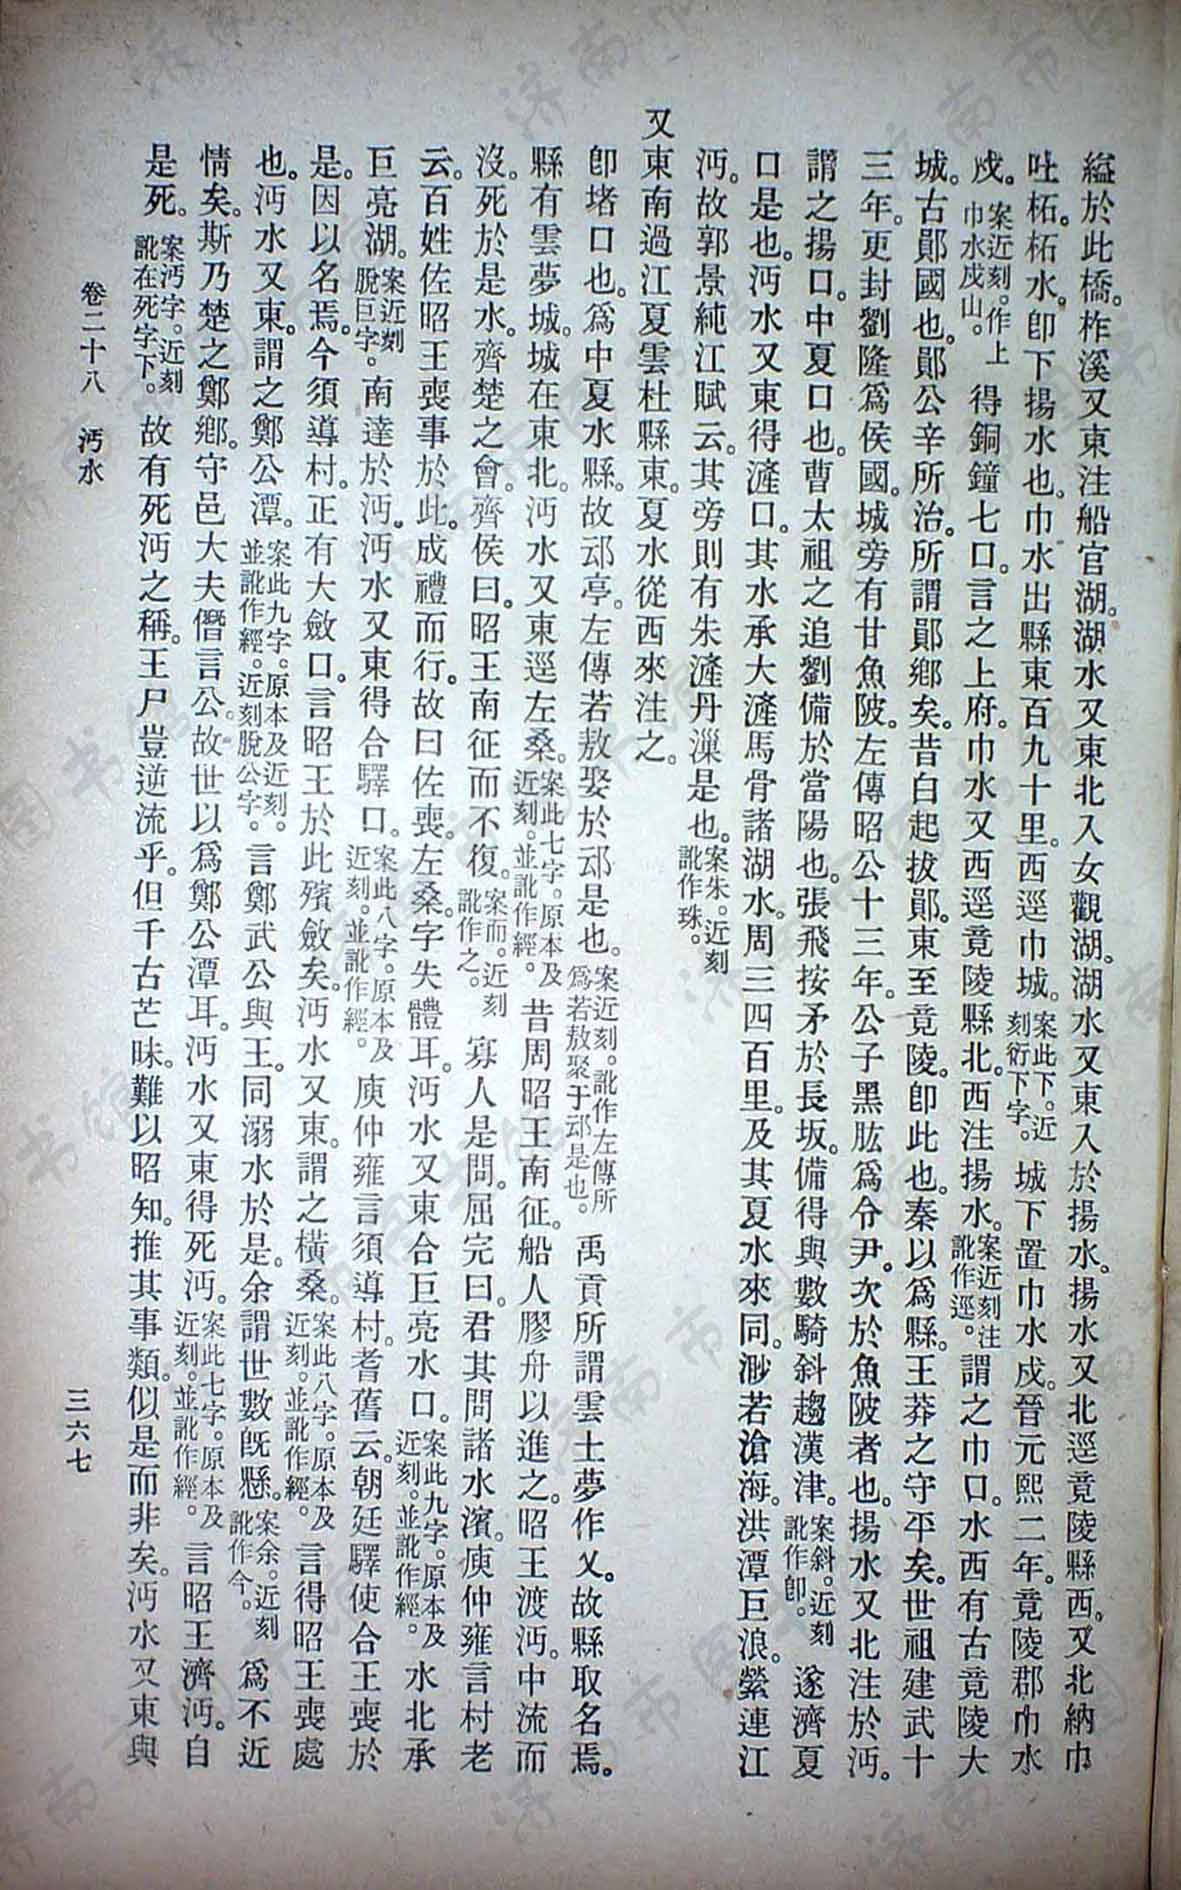 縊於此橋。柞溪又東注船官湖。湖水又東北入女觀湖。湖水又東入於揚水。揚水又北逕竟陵縣西。又北納巾
吐柘。柘水。卽下揚水也。巾水出縣東百九十里。西逕巾城。案此下。近刻衍下字。城下置巾水戍。晉元熙二年。竟陵郡巾水
戍。案近刻。作上巾水戍山。得銅鐘七口。言之上府。巾水又西逕竟陵縣北。西注揚水。案近刻注訛作逕。謂之巾口。水西有古竟陵大
城。古鄖國也。鄖公辛所治。所謂鄖鄉矣。昔白起拔鄖。東至竟陵。卽此也。秦以爲縣。王莽之守平矣。世祖建武十
三年。更封劉隆爲侯國。城旁有甘魚陂。左傳昭公十三年。公子黑肱爲令尹。次於魚陂者也。揚水又北注於沔。
謂之揚口。中夏口也。曹太祖之追劉備於當陽也。張飛按矛於長坂。備得與數騎斜趨漢津。案斜。近刻訛作卽。遂濟夏
口是也。沔水又東得滻口。其水承大滻馬骨諸湖水。周三四百里。及其夏水來同。渺若滄海。洪潭巨浪。縈連江
沔。故郭景純江賦云。其旁則有朱滻丹漅是也。案朱。近刻訛作珠。
又東南過江夏雲杜縣東。夏水從西來注之。
卽堵口也。爲中夏水縣。故䢵亭。左傳若敖娶於䢵是也。案近刻。訛作左傳所爲若敖聚于䢵是也。禹貢所謂雲土夢作乂。故縣取名焉。
縣有雲夢城。城在東北。沔水又東逕左桑。案此七字。原本及近刻。並訛作經。昔周昭王南征。船人膠舟以進之。昭王渡沔。中流而
沒。死於是水。齊楚之會。齊侯曰。昭王南征而不復。案而。近刻訛作之。寡人是問。屈完曰。君其問諸水濱。庾仲雍言村老
云。百姓佐昭王喪事於此。成禮而行。故曰佐喪。左桑。字失體耳。沔水又東合巨亮水口。案此九字。原本及近刻。並訛作經。水北承
巨亮湖。案近刻脫巨字。南達於沔。沔水又東得合驛口。案此八字。原本及近刻。並訛作經。庾仲雍言須導村。耆舊云。朝廷驛使合王喪於
是。因以名焉。今須導村。正有大斂口。言昭王於此殯斂矣。沔水又東。謂之橫桑。案此八字。原本及近刻。並訛作經。言得昭王喪處
也。沔水又東。謂之鄭公潭。案此九字。原本及近刻。並訛作經。近刻脫公字。言鄭武公與王。同溺水於是。余謂世數旣懸。案余。近刻訛作今。爲不近
情矣。斯乃楚之鄭鄉。守邑大夫僭言公。故世以爲鄭公潭耳。沔水又東得死沔。案此七字。原本及近刻。並訛作經。言昭王濟沔。自
是死。案沔字。近刻訛在死字下。故有死沔之稱。王尸豈逆流乎。但千古芒昧。難以昭知。推其事類。似是而非矣。沔水又東與
卷二十八 沔水
三六七